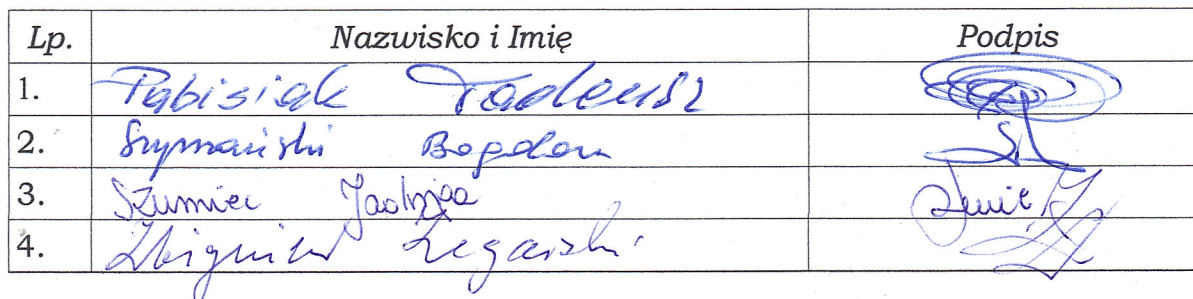 Lp. Nazwisko i Imię Podpis
1. Pabisiak Tadeusz
2. Szymański Bogdan
3. Szumiec Jadwiga
4. Zbigniew